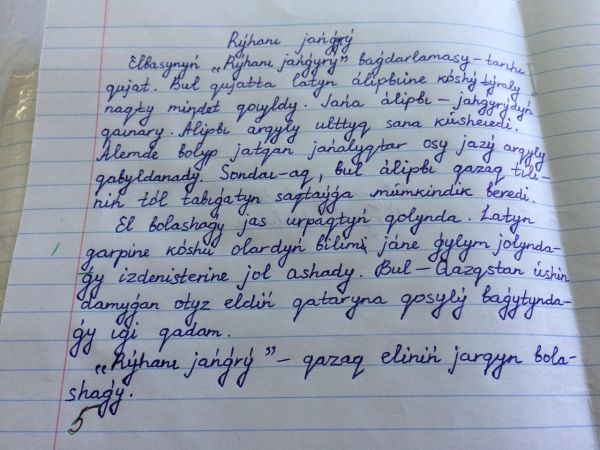 Rýhanı jańǵyrý
Elbasynyń „Rýhanı jańǵyrý" baǵdarlamasy – tarıhı
qujat. Bul qujatta latyn álipbiine kóshý týraly
naqty mindet qoıyldy. Jańa álipbı – jańǵyrýdyń
qaınary. Álipbı arqyly ulttyq sana kúsheıedi.
Álemde bolyp jatqan jańalyqtar osy jazý arqyly
qabyldanady. Sondaı-aq, bul álipbı qazaq tili-
niń tól tabıǵatyn saqtaýǵa múmkindik beredi.
El bolashaǵy jas urpaqtyń qolynda. Latyn
qarpine kóshý olardyń bilimi jáne ǵylym jolynda-
ǵy izdenisterine jol ashady. Bul – Qazqstan úshin
damyǵan otyz eldiń qataryna qosylý baǵytynda-
ǵy igi qadam.
„Rýhanı jańǵrý" – qazaq eliniń jarqyn bola-
shaǵy.
5